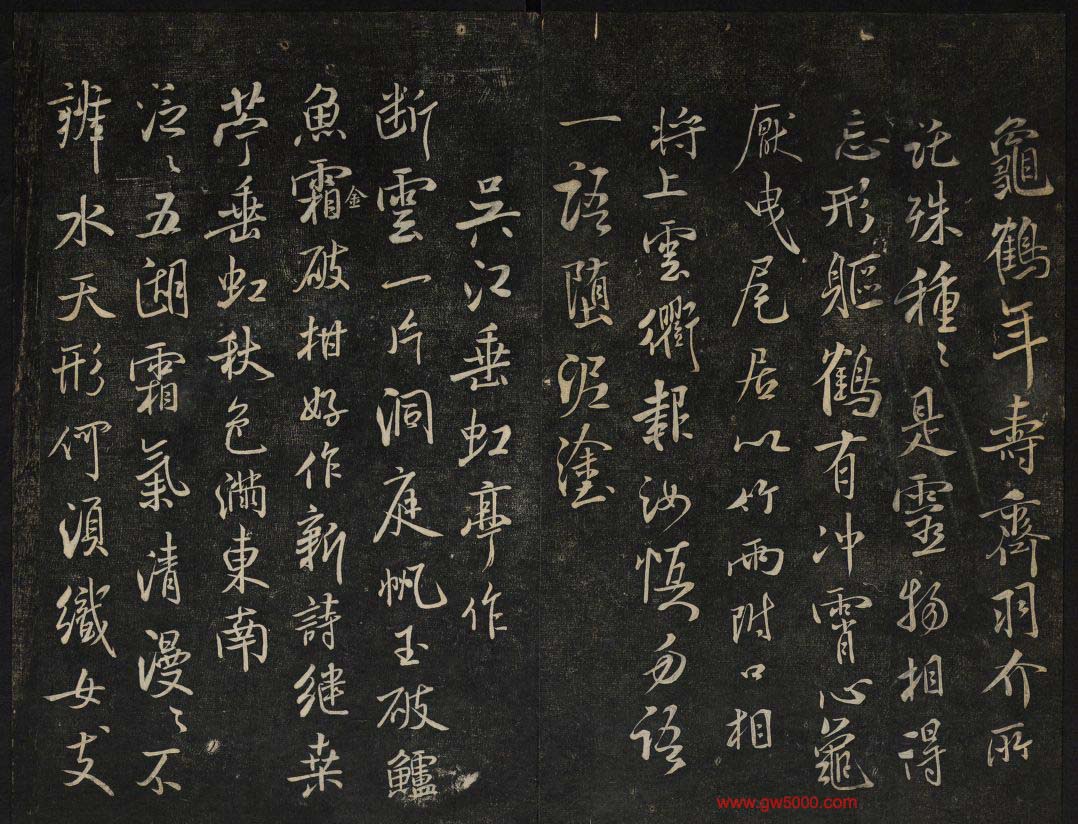 龜鶴年壽齊羽介所
託殊種〻是靈物相得
忘形軀鶴有冲霄心龜
厭曳尾居以竹兩附口相
將上雲衢報汝慎勿語
一語堕泥塗
吳江垂虹亭作
断雲一片洞庭帆玉破鱸
魚霜金破柑好作新詩継桒
苧垂虹秋色滿東南
泛〻五湖霜氣清漫〻不
辨水天形何須織女支
www.gw5000.com